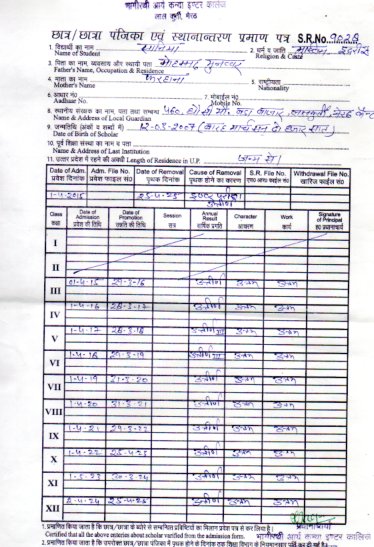 भागीरथी आर्य कन्या इण्टर कालिज
लाल कुर्ती, मेरठ
छात्र/छात्रा पंजिका एवं स्थानान्तरण प्रमाण पत्र S.R.No. 9028
1. विद्यार्थी का नाम सानिया
Name of Student
2. धर्म व जाति मुस्लिम इदरीसी
Religion & Caste
3. पिता का नाम, व्यवसाय और स्थायी पता मोहम्मद मुनव्वर
Father's Name, Occupation & Residence
4. माता का नाम फरहाना
Mother's Name
5. राष्ट्रीयता
Nationality
6. आधार नं०
Aadhar No.
7. मोबाईल नं०
Mobile No.
8. स्थानीय संरक्षक का नाम, पता तथा सम्बन्ध 460, बड़ा बाजार, लालकुर्ती, मेरठ कैन्ट
Name & Address of Local Guardian
9. जन्मतिथि (अंकों व शब्दों में) 12-03-2007 (बारह मार्च सन् दो हजार सात)
Date of Birth of Scholar
10. पूर्व शिक्षा संस्था का नाम व पता
Name & Address of Last Institution
11. उत्तर प्रदेश में रहने की अवधी Length of Residence in U.P. जन्म से।
Date of Adm. प्रवेश दिनांक
Adm. File No. प्रवेश फाईल सं०
Date of Removal पृथक दिनांक
Cause of Removal पृथक होने का कारण
S.R. File No.
Withdrawal File No. खारिज फाईल सं०
1-4-2015 25-4-25 इण्टर परीक्षा उत्तीर्ण
Class कक्षा
Date of Admission प्रवेश की तिथि
Date of Promotion उन्नति की तिथि
Session सत्र
Annual Result वार्षिक प्रगति
Character आचरण
Work कार्य
Signature of Principal ह० प्रधानाचार्य
I
II
III 01-4-15 29-3-16 उत्तीर्ण उत्तम उत्तम
IV 1-4-16 28-3-17 उत्तीर्ण उत्तम उत्तम
V 1-4-17 28-3-18 उत्तीर्ण उत्तम उत्तम
VI 1-4-18 29-3-19 उत्तीर्ण उत्तम उत्तम
VII 1-4-19 31-3-20 उत्तीर्ण उत्तम उत्तम
VIII 1-4-20 31-3-21 उत्तीर्ण उत्तम उत्तम
IX 1-4-21 29-3-22 उत्तीर्ण उत्तम उत्तम
X 1-4-22 25-4-23 उत्तीर्ण उत्तम उत्तम
XI उत्तीर्ण उत्तम उत्तम
XII 25-4-25 उत्तीर्ण उत्तम उत्तम
1. प्रमाणित किया जाता है कि छात्र/छात्रा के ब्योरे से सम्बन्धित प्रविष्टियों का मिलान प्रवेश पत्र से कर लिया है।
Certified that all the above enteries about scholar verified from the admission form.
प्रधानाचार्या
भागीरथी आर्य कन्या इण्टर कालिज